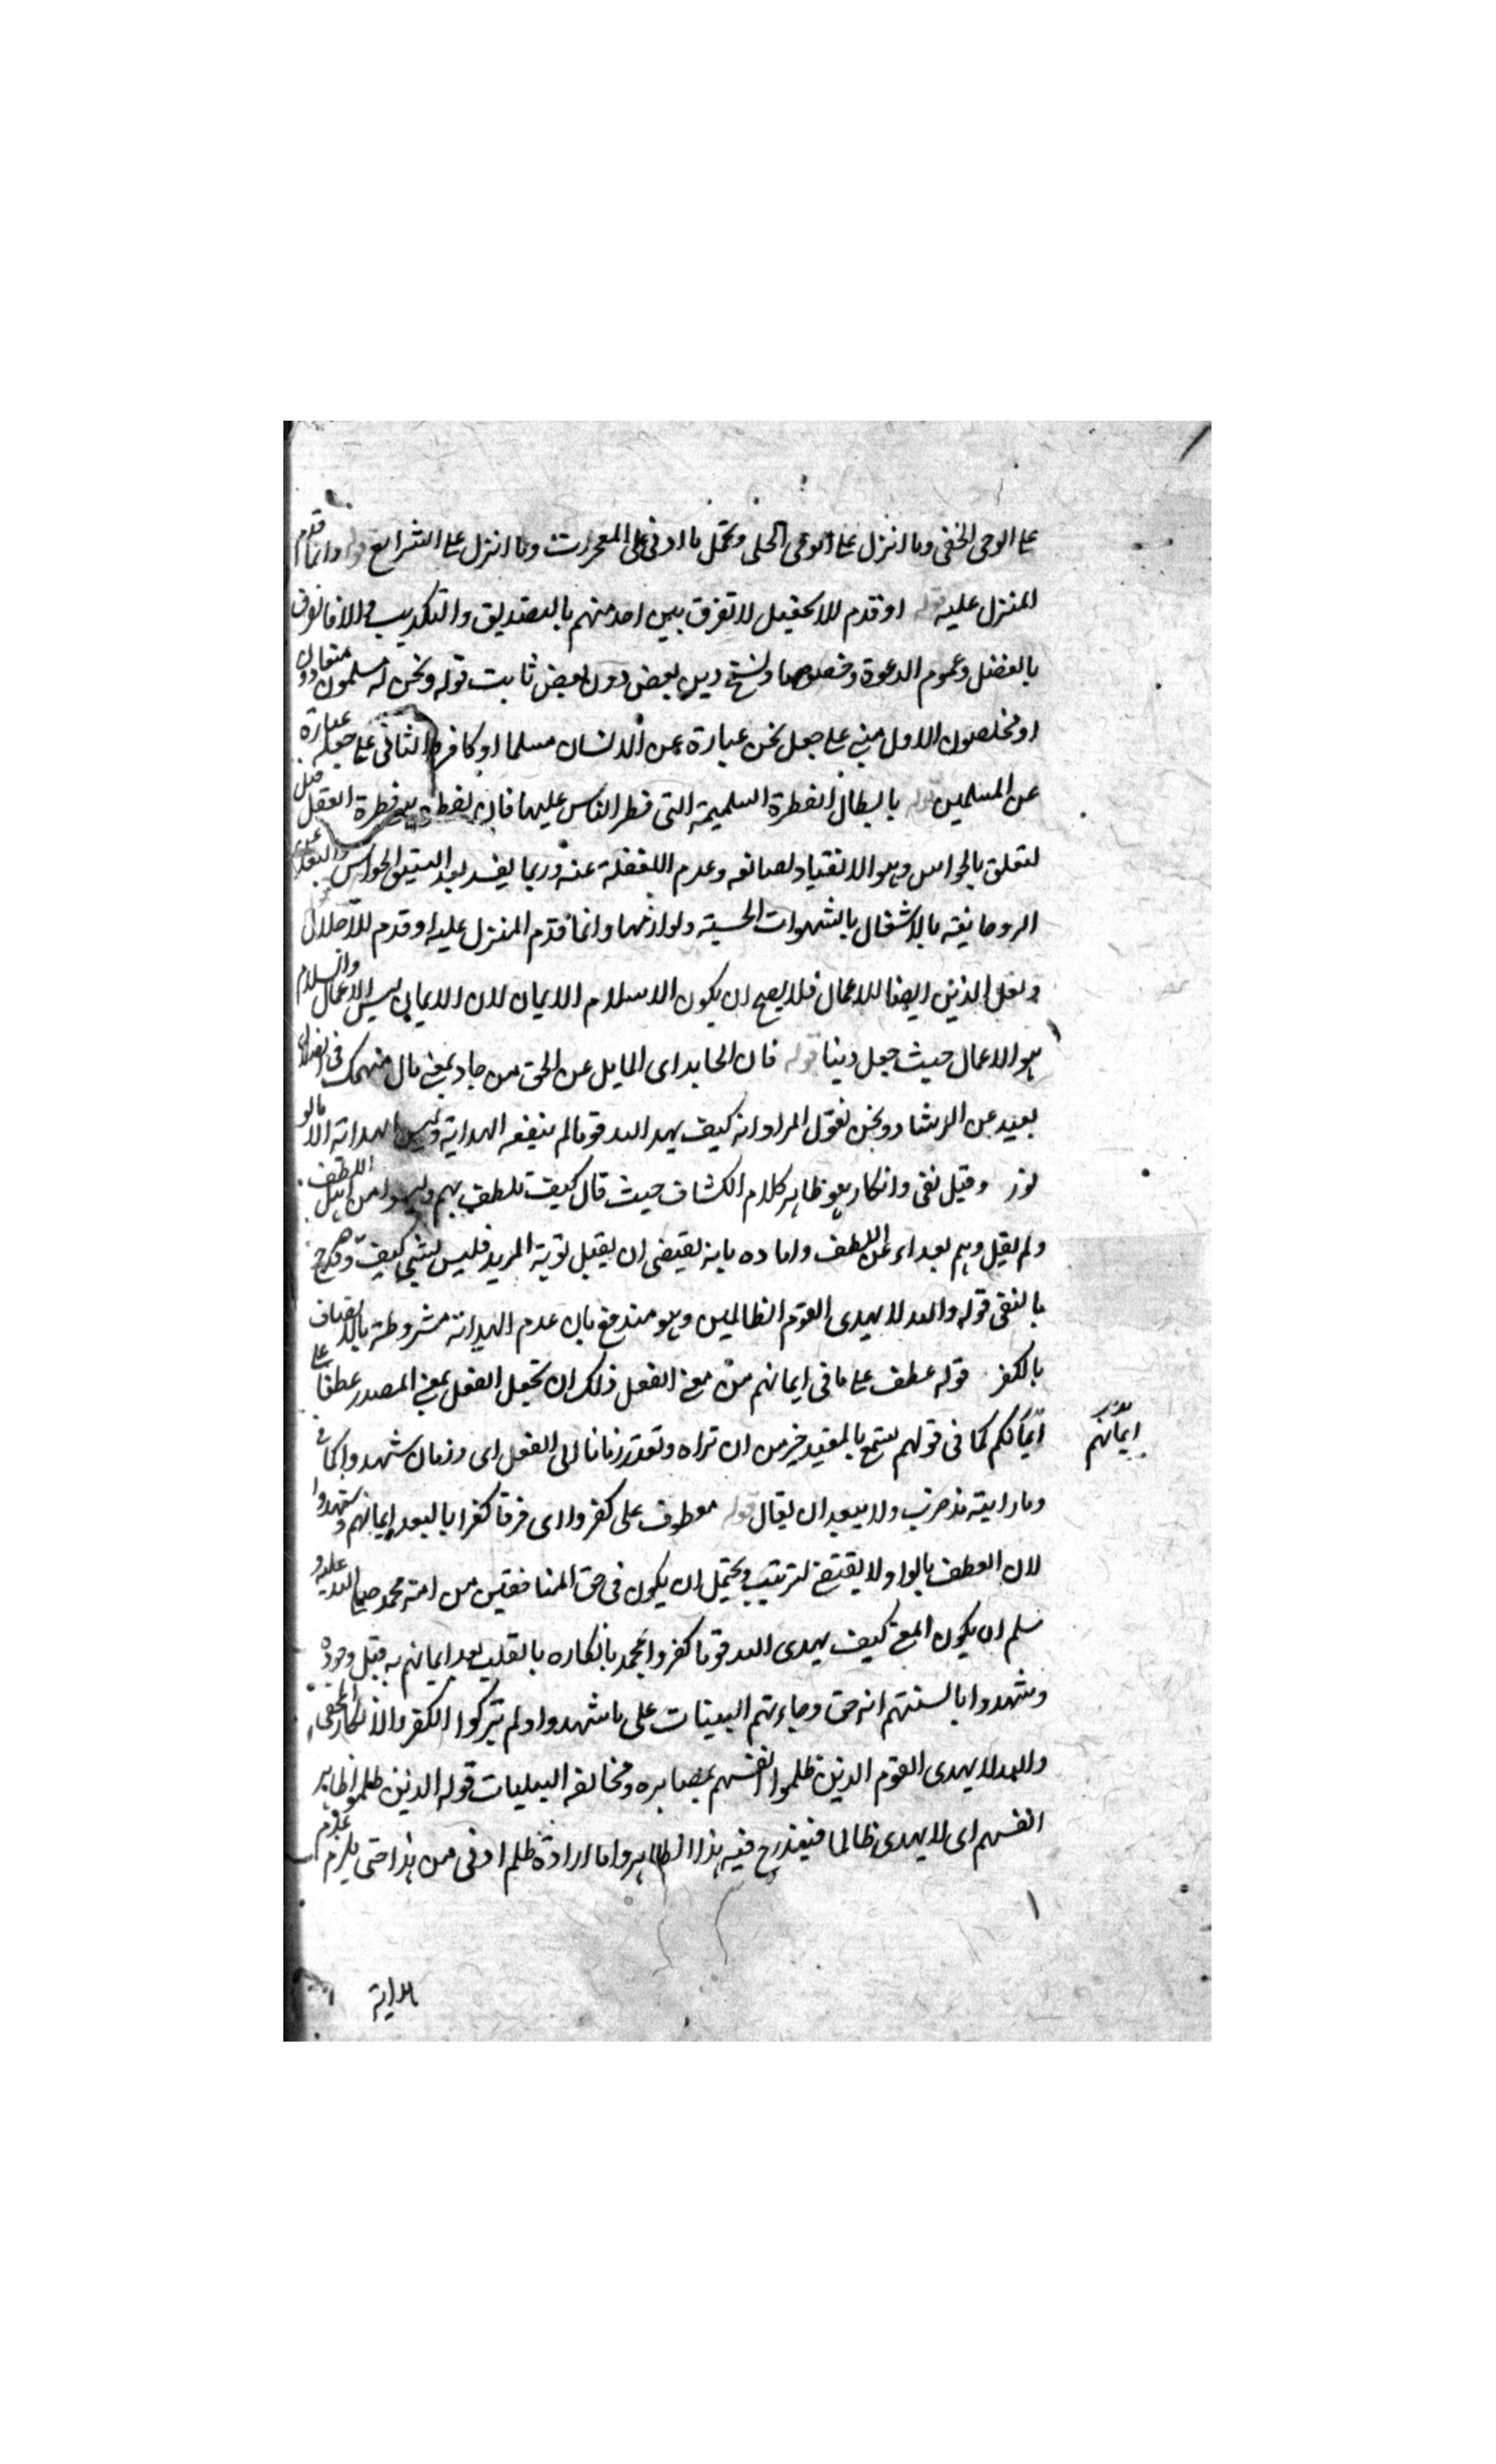 على الوحى الخفى وما انزل على الوحى الجلى ويحتمل ما اوتى على المعجزات وما انزل على الشرايع قوله وانما قدم
المنزل عليه قوله او قدم للا بين احد منهم بالتصديق والتكذيب الا فالفرق
بالفضل وعموم الدعوة وخصوصها ونسخ دين بعض دون بعض ثابت قوله ونحن له مسلمون منقادون
او مخلصون الاول مبنى على جعل نحن عبارة عن الانسان مسلما او كافرا والثانى على جعله عبارة
عن المسلمين قوله بابطال الفطرة السليمة التى فطر الناس عليها فان فطرة العقل قبل
تعلق بالحواس وهو الانقياد لصانعه وعدم الغفلة عنه وربما يفسد بعد الحواس
الروحانية بالاشتغال بالشهوات الحسية ولوازمها وانما قدم المنزل عليه او قدم للاجلال
ولعل الدين ايضا للاعمال فلا يصح ان يكون الاسلام الايمان لان الايمان ليس الاعمال والسلام
هو الاعمال حيث جعل دينا قوله فان الحايد اى المايل عن الحق من حاد بمعنى مال منهمك فى الضلال
بعيد عن الرشاد ونحن نقول المراد انه كيف يهد الله قوما لم ينفعه الهداية وليس الهداية الا
نور وقيل نفى وانكار هو ظاهر كلام الكشاف حيث قال كيف تلطف بهم وليسوا من اهل اللطف
ولم يقل وهم بعداء عن اللطف واما ده بانه يقتضى ان يقبل توبة المريد فليس بشئ كيف وقد صرح
بالنفى قوله والله لا يهدى القوم الظالمين وهو مندفع بان عدم الهداية مشروطة بالاتصاف
بالكفر قوله عطف على ما فى ايمانهم من معنى الفعل ذلك ان تجعل الفعل بمعنى المصدر عطفا على
ايمانكم كما فى قولهم تسمع بالمعيد خير من ان تراه وتقدر زمانا الى الفعل اى وزمان شهدوا كما فى
وما رايته مذ ضرب ولا يبعد ان يقال قوله معطوف على كفروا اى فرقا كفرا بالبعد ايمانهم وشهدوا
لان العطف بالواو لا يقتضى لترتيب ويحتمل ان يكون فى حق المنافقين من امة محمد صلى الله عليه و
سلم ان يكون المعنى كيف يهدى الله قوما كفروا بمحمد بانكاره بالقلب بعد ايمانهم به قبل وجوده
وشهدوا بالسنتهم انه حق وجاءتهم البينات على ما شهدوا ولم يتركوا الكفر والانكار الخفى
والله لا يهدى القوم الذين ظلموا انفسهم ومخالفة قوله الذين ظلموا ظاهر
انفسهم اى لا يهدى ظالما فيندرج فيه هذا الظاهر واما ارادة ظلم ادنى من هذا حتى يلزم عدم
ايمانهم